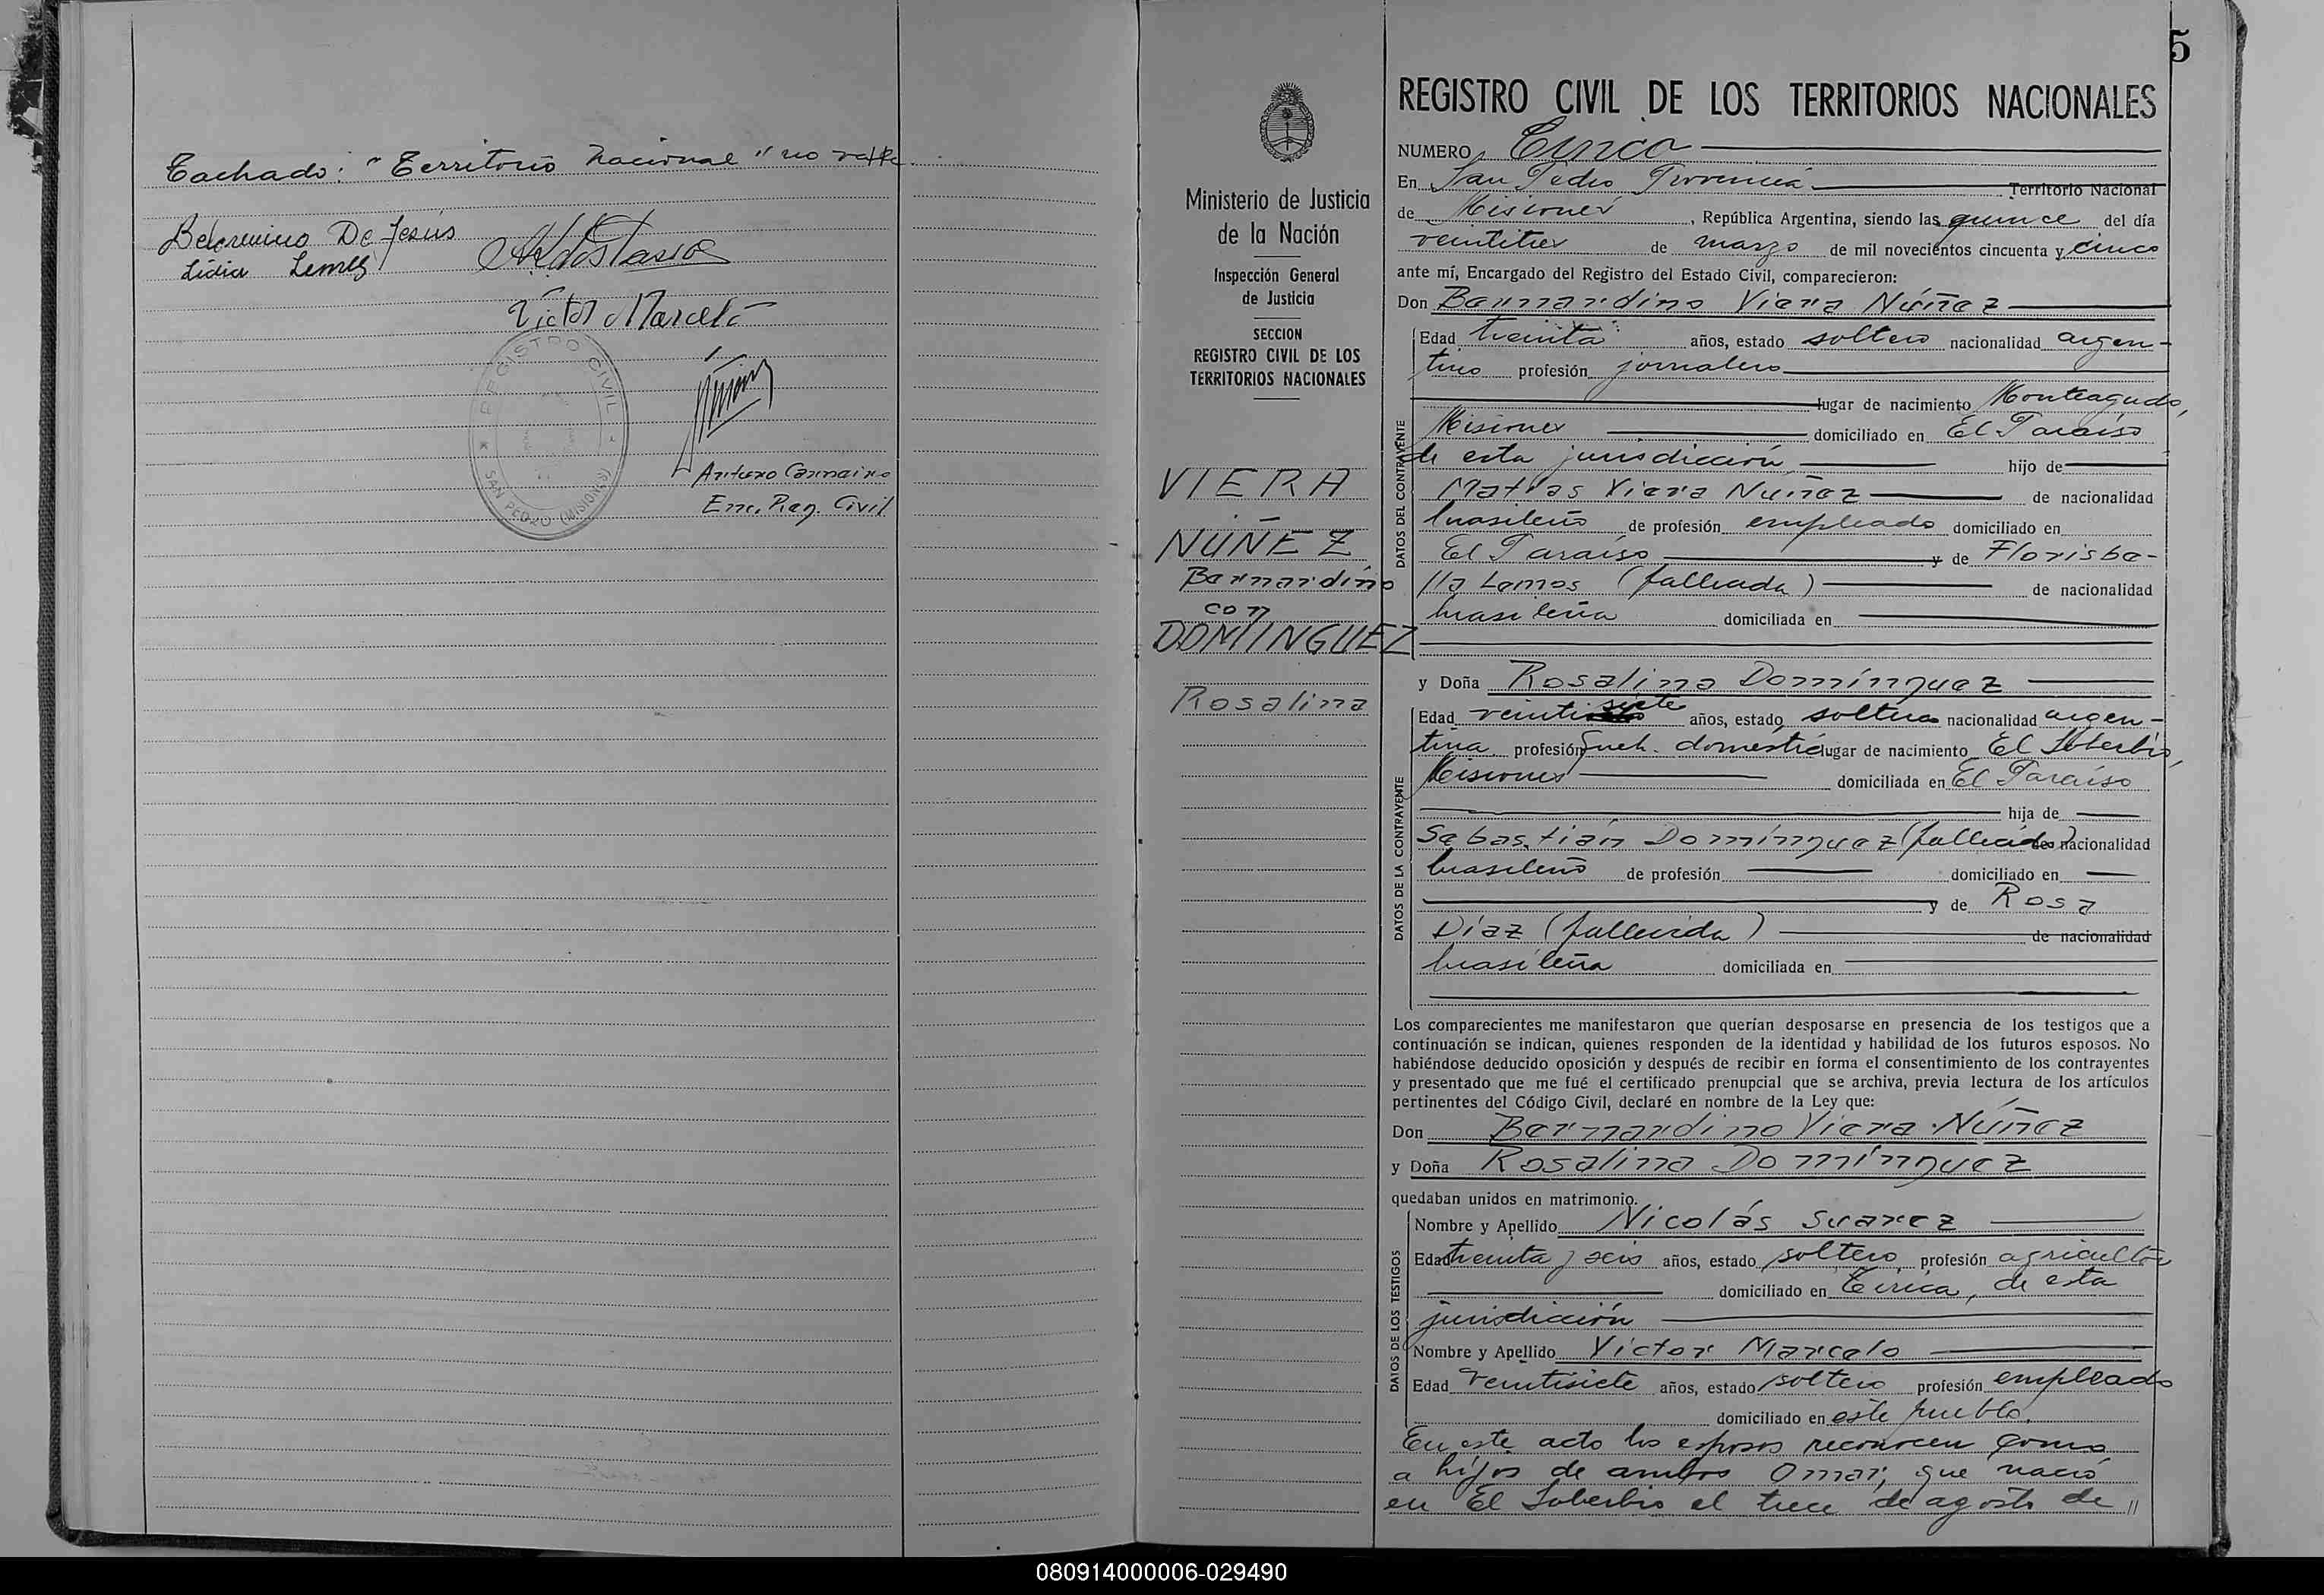 Tachado: "Territorio Nacional" no vale.
Belarmino De Jesús
Lidia Lemes
Victor Marcelo
REGISTRO CIVIL
SAN PEDRO (MISIONES)
Arturo
Enc. Reg. Civil
5
Ministerio de Justicia
de la Nación
Inspección General
de Justicia
SECCION
REGISTRO CIVIL DE LOS
TERRITORIOS NACIONALES
VIERA
NÚÑEZ
Bernardino
con
DOMINGUEZ
Rosalina
REGISTRO CIVIL DE LOS TERRITORIOS NACIONALES
NUMERO Cinco
En San Pedro Provincia Territorio Nacional
de Misiones, República Argentina, siendo las quince del día
veintitres de marzo de mil novecientos cincuenta y cinco
ante mí, Encargado del Registro del Estado Civil, comparecieron:
Don Bernardino Viera Núñez
DATOS DEL CONTRAYENTE
Edad treinta años, estado soltero nacionalidad argen-
tino profesión jornalero
lugar de nacimiento Monteagudo,
Misiones domiciliado en El Paraiso
de esta jurisdicción hijo de
Matias Viera Núñez de nacionalidad
brasileño de profesión empleado domiciliado en
El Paraiso y de Florisbe-
lla Lemes (fallecida) de nacionalidad
brasileña domiciliada en
y Doña Rosalina Domínguez
DATOS DE LA CONTRAYENTE
Edad veintisiete años, estado soltera nacionalidad argen-
tina profesión Queh. domestic lugar de nacimiento El Soberbio,
Misiones domiciliada en El Paraiso
hija de
Sebastián Domínguez (fallecido) de nacionalidad
brasileño de profesión domiciliado en
y de Rosa
Díaz (fallecida) de nacionalidad
brasileña domiciliada en
Los comparecientes me manifestaron que querían desposarse en presencia de los testigos que a
continuación se indican, quienes responden de la identidad y habilidad de los futuros esposos. No
habiéndose deducido oposición y después de recibir en forma el consentimiento de los contrayentes
y presentado que me fué el certificado prenupcial que se archiva, previa lectura de los artículos
pertinentes del Código Civil, declaré en nombre de la Ley que:
Don Bernardino Viera Núñez
y Doña Rosalina Domínguez
quedaban unidos en matrimonio.
DATOS DE LOS TESTIGOS
Nombre y Apellido Nicolás Suarez
Edad treinta y seis años, estado soltero profesión agricultor
domiciliado en Tirica, de esta
jurisdicción
Nombre y Apellido Victor Marcelo
Edad veintisiete años, estado soltero profesión empleado
domiciliado en este pueblo.
En este acto los esposos reconocen como
a hijos de ambos Omar, que nació
en El Soberbio el trece de agosto de //
080914000006-029490